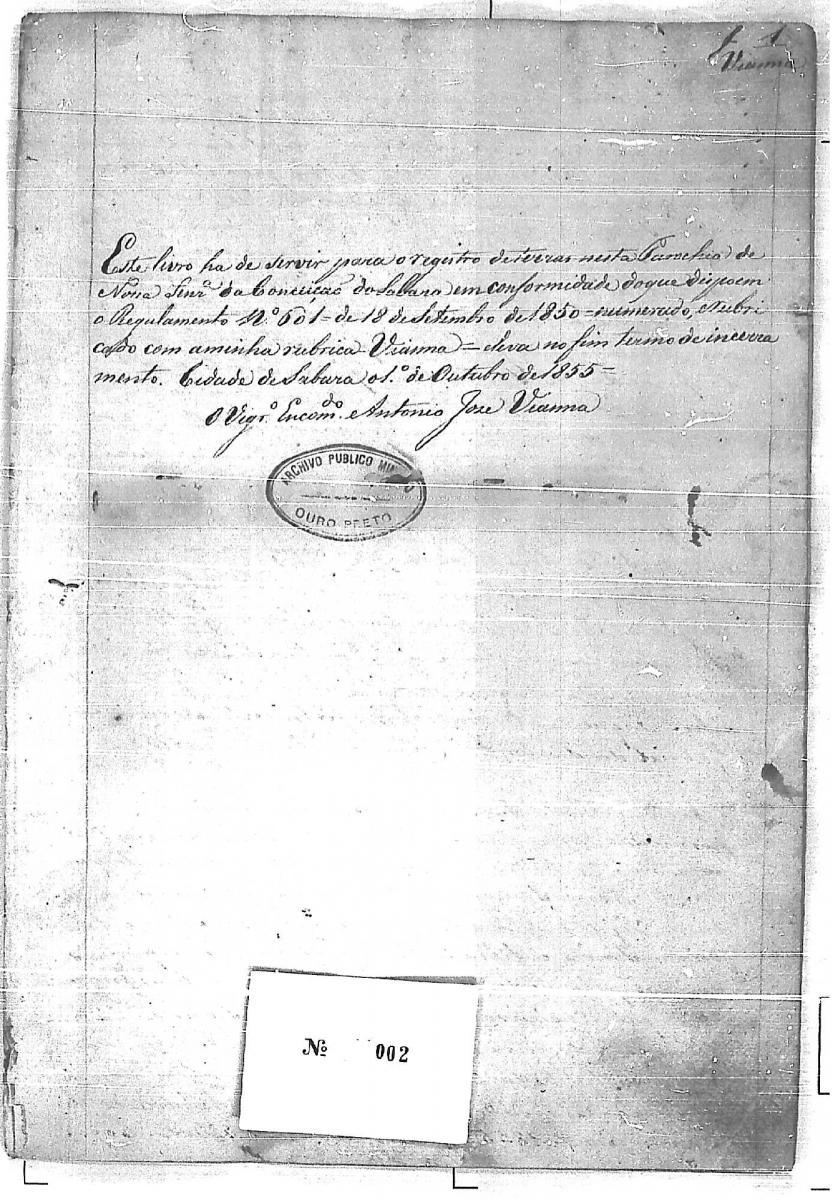 f 1
Vianna
Este livro ha de servir para o registro de terras nesta Parochia de
Nossa Senrª da Conceiçaõ do Sabara em conformidade do que dispoem
o Regulamento N.º 601 = de 18 de Setembro de 1850 = numerado, e rubri
cado com a minha rubrica = Vianna = e leva no fim termo de incerra
mento. Cidade de Sabara o 1.º de Outubro de 1855 =
O Vigrº Encomdo. Antonio Jose Vianna
ARCHIVO PUBLICO
OURO PRETO
Nº 002